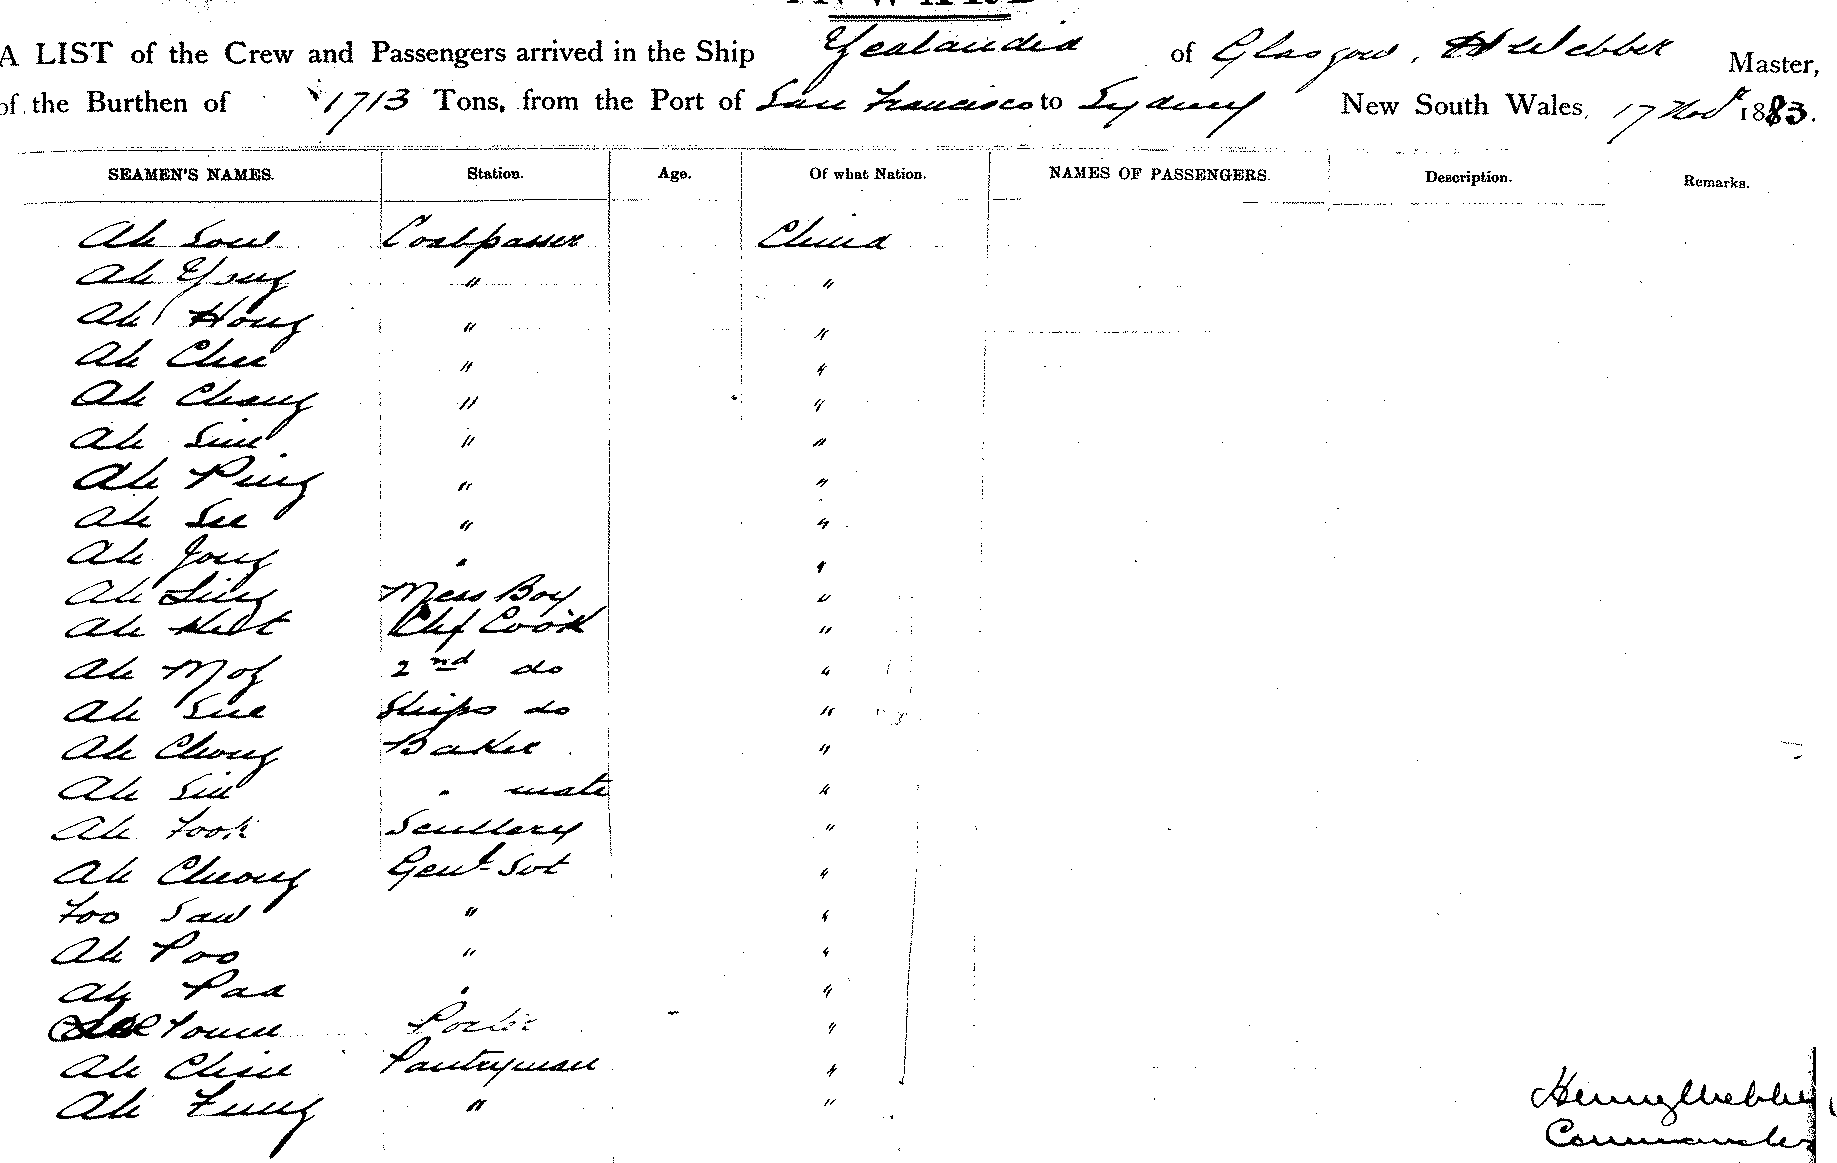 INWARD
A LIST of the Crew and Passengers arrived in the Ship Zealandia of Glasgow, H Webber Master,
of the Burthen of 1713 Tons, from the Port of San Francisco to Sydney New South Wales, 17 Novr 1883.
SEAMEN'S NAMES. Station. Age. Of what Nation. NAMES OF PASSENGERS. Description. Remarks.
Ah Sow Coalpasser China
Ah Yong " "
Ah Hong " "
Ah Chee " "
Ah Chang " "
Ah Sim " "
Ah Ping " "
Ah See " "
Ah Jong " "
Ah Ling Mess Boy "
Ah Chf Cook "
Ah Moy 2nd do "
Ah Sue Ships do "
Ah Chong Baker "
Ah Sin " mate "
Ah Fook Scullery "
Ah Cheong Genl Svt "
Foo Saw " "
Ah Poo " "
Ah Paa " "
Porter "
Ah Chin Pantryman "
Ah Fung " "
Henry Webber
Commander